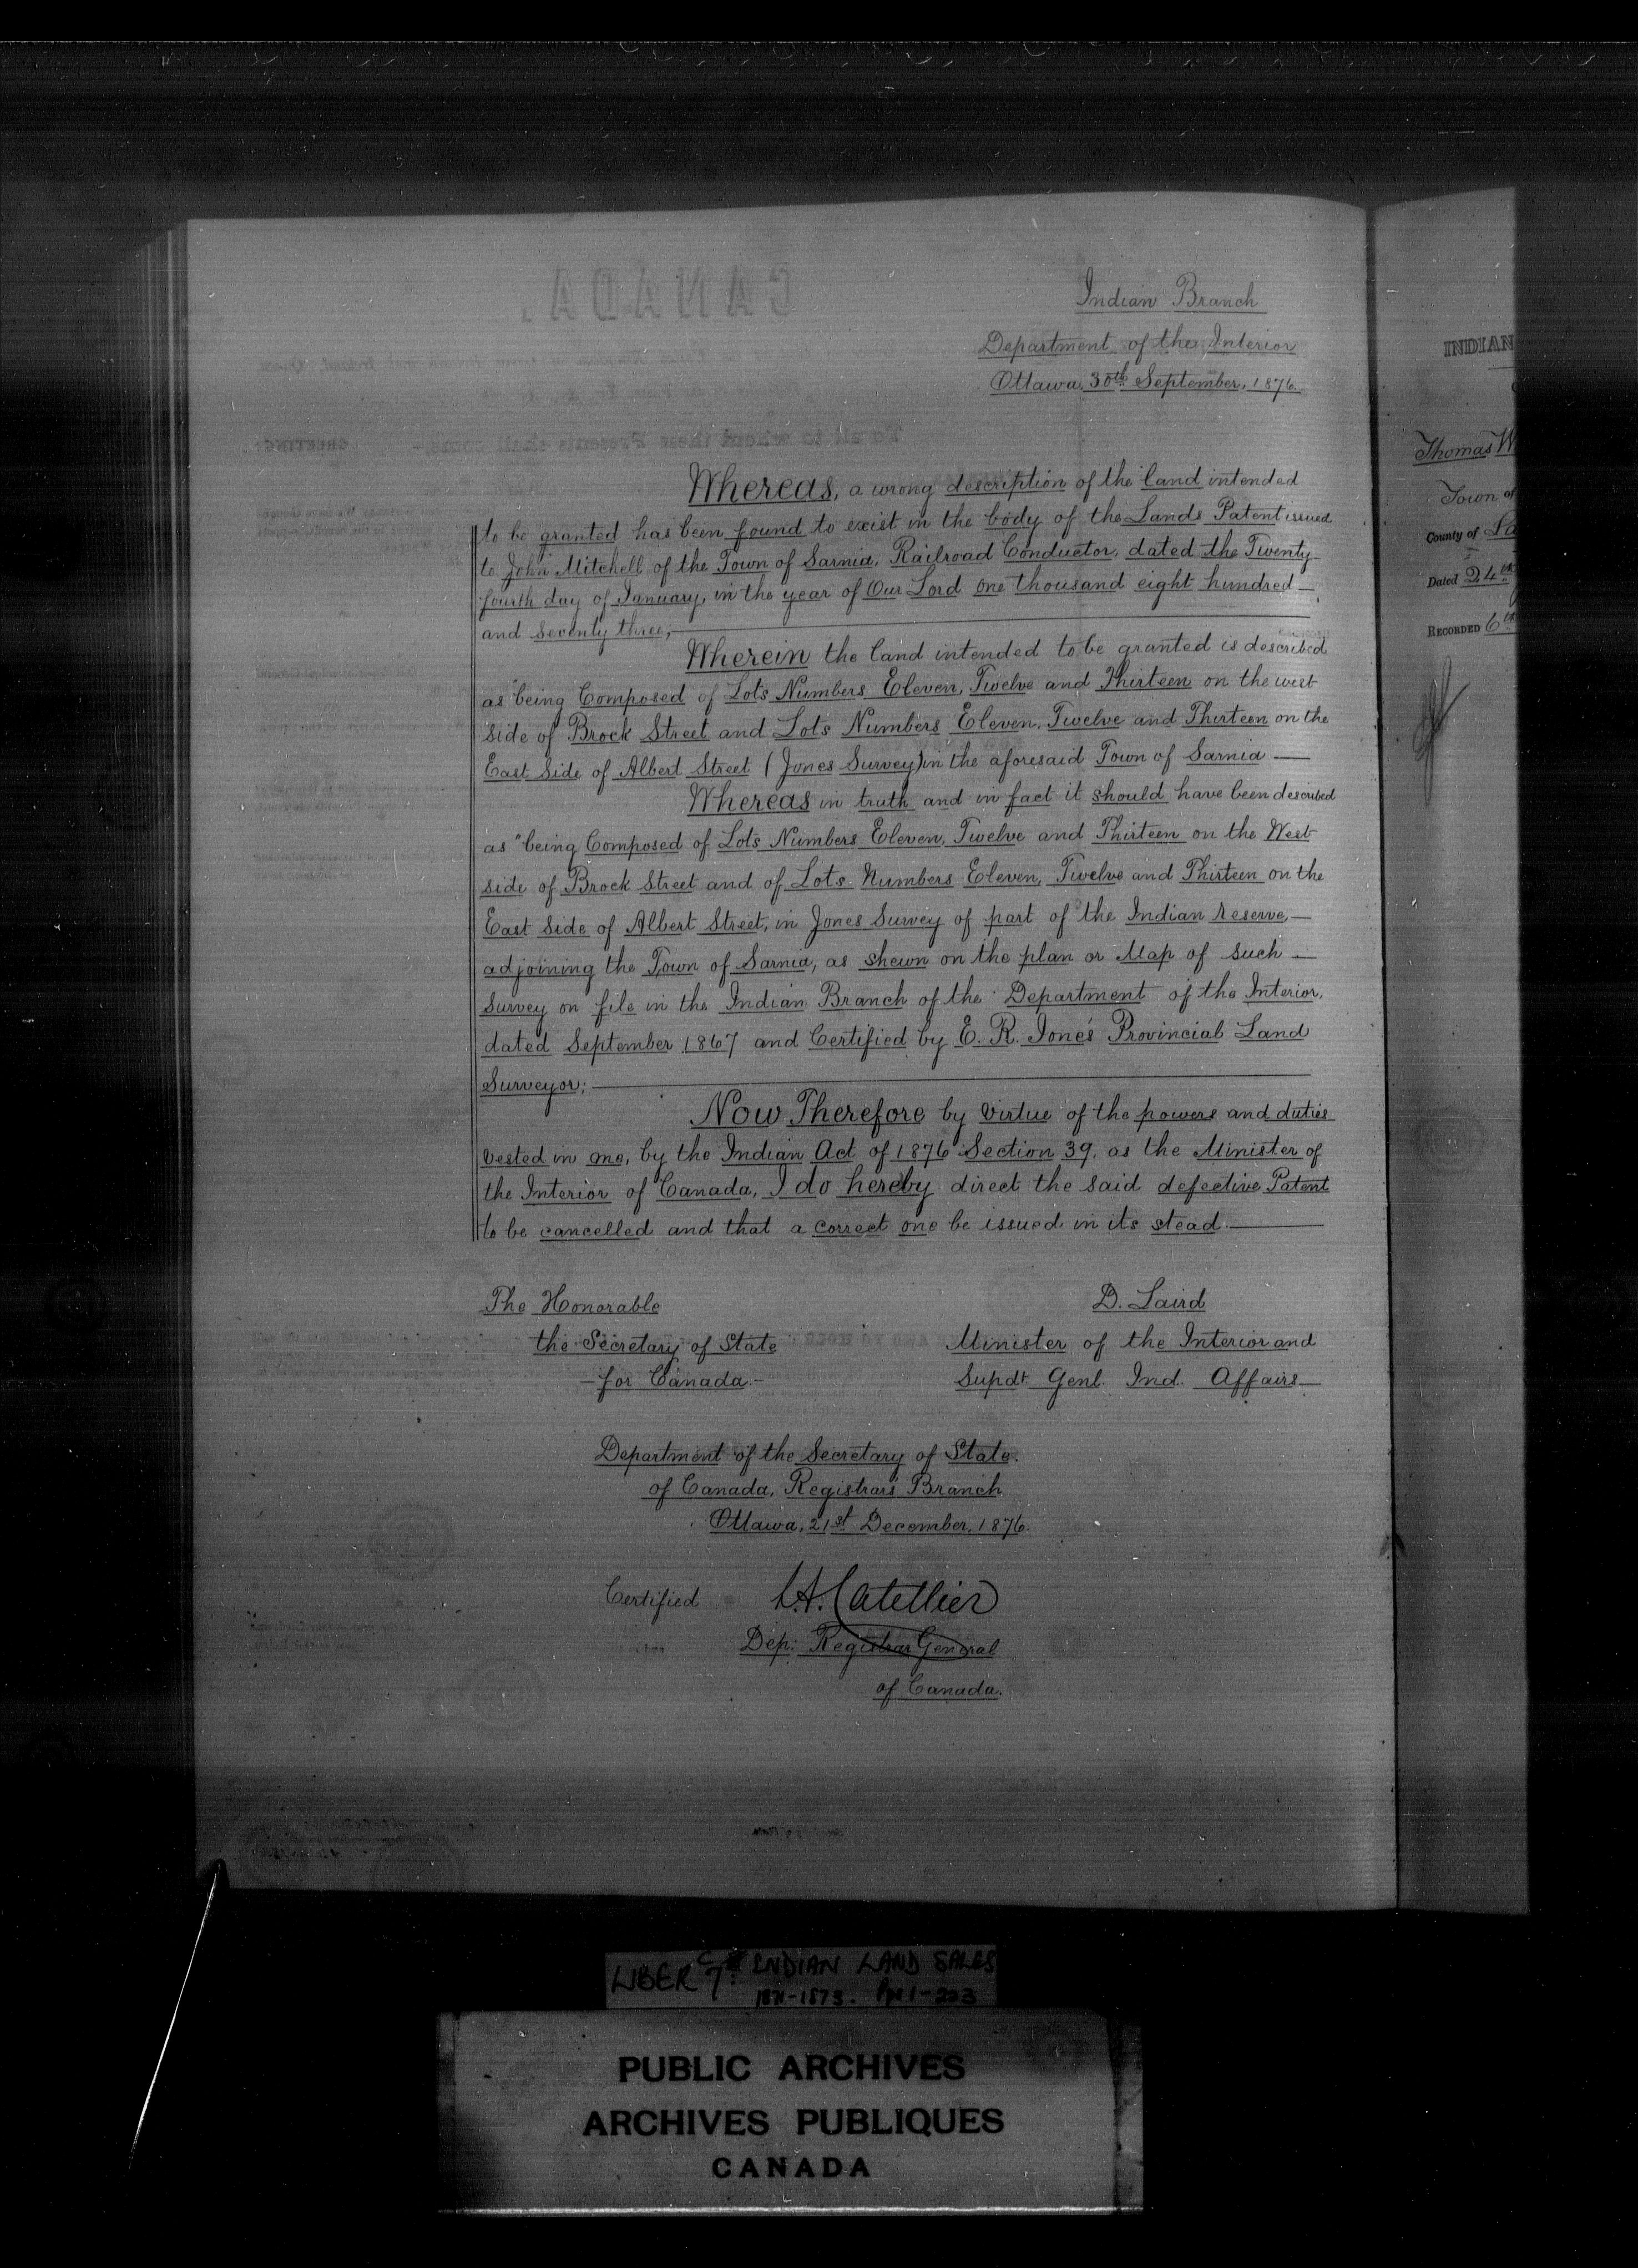 Indian Branch
Department of the Interior
Ottawa, 30th September, 1876.
Whereas, a wrong description of the land intended
to be granted has been found to exist in the body of the Lands Patent issued
to John Mitchell of the Town of Sarnia, Railroad Conductor, dated the Twenty
fourth day of January, in the year of Our Lord one thousand eight hundred —
and seventy three;
Wherein the land intended to be granted is described
as "being Composed of Lots Numbers Eleven, Twelve and Thirteen on the west
side of Brock Street and Lots Numbers Eleven, Twelve and Thirteen on the
East Side of Albert Street (Jones Survey) in the aforesaid Town of Sarnia —
Whereas in truth and in fact it should have been described
as "being Composed of Lots Numbers Eleven, Twelve and Thirteen on the West
side of Brock Street and of Lots Numbers Eleven, Twelve and Thirteen on the
East Side of Albert Street, in Jones Survey of part of the Indian Reserve, —
adjoining the Town of Sarnia, as shewn on the plan or Map of such —
Survey on file in the Indian Branch of the Department of the Interior,
dated September 1867 and Certified by E. R. Jones Provincial Land
Surveyor;
Now Therefore by virtue of the powers and duties
vested in me, by the Indian Act of 1876 Section 39, as the Minister of
the Interior of Canada, I do hereby direct the said defective Patent
to be cancelled and that a correct one be issued in its stead.
The Honorable
the Secretary of State
— for Canada. —
D. Laird
Minister of the Interior and
Supdt Genl. Ind. Affairs
Department of the Secretary of State.
of Canada, Registrar's Branch
Ottawa, 21st December, 1876.
Certified L.A. Catellier
Dep: Registrar General
of Canada.
INDIAN
Thomas W
Town of
County of La
Dated 24th
RECORDED 6th
LIBER C7: INDIAN LAND SALES
1871-1873. Pps 1-203
PUBLIC ARCHIVES
ARCHIVES PUBLIQUES
CANADA